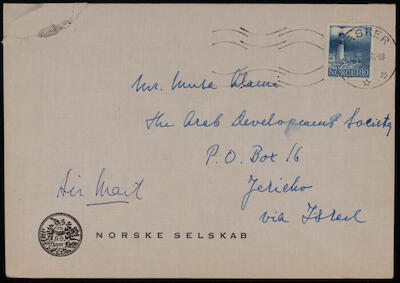 ASKER
NORGE 180
Mr. Musa Alami
The Arab Development Society
P.O. Box 16
Jericho
via Israel
Air Mail
NORSKE SELSKAB